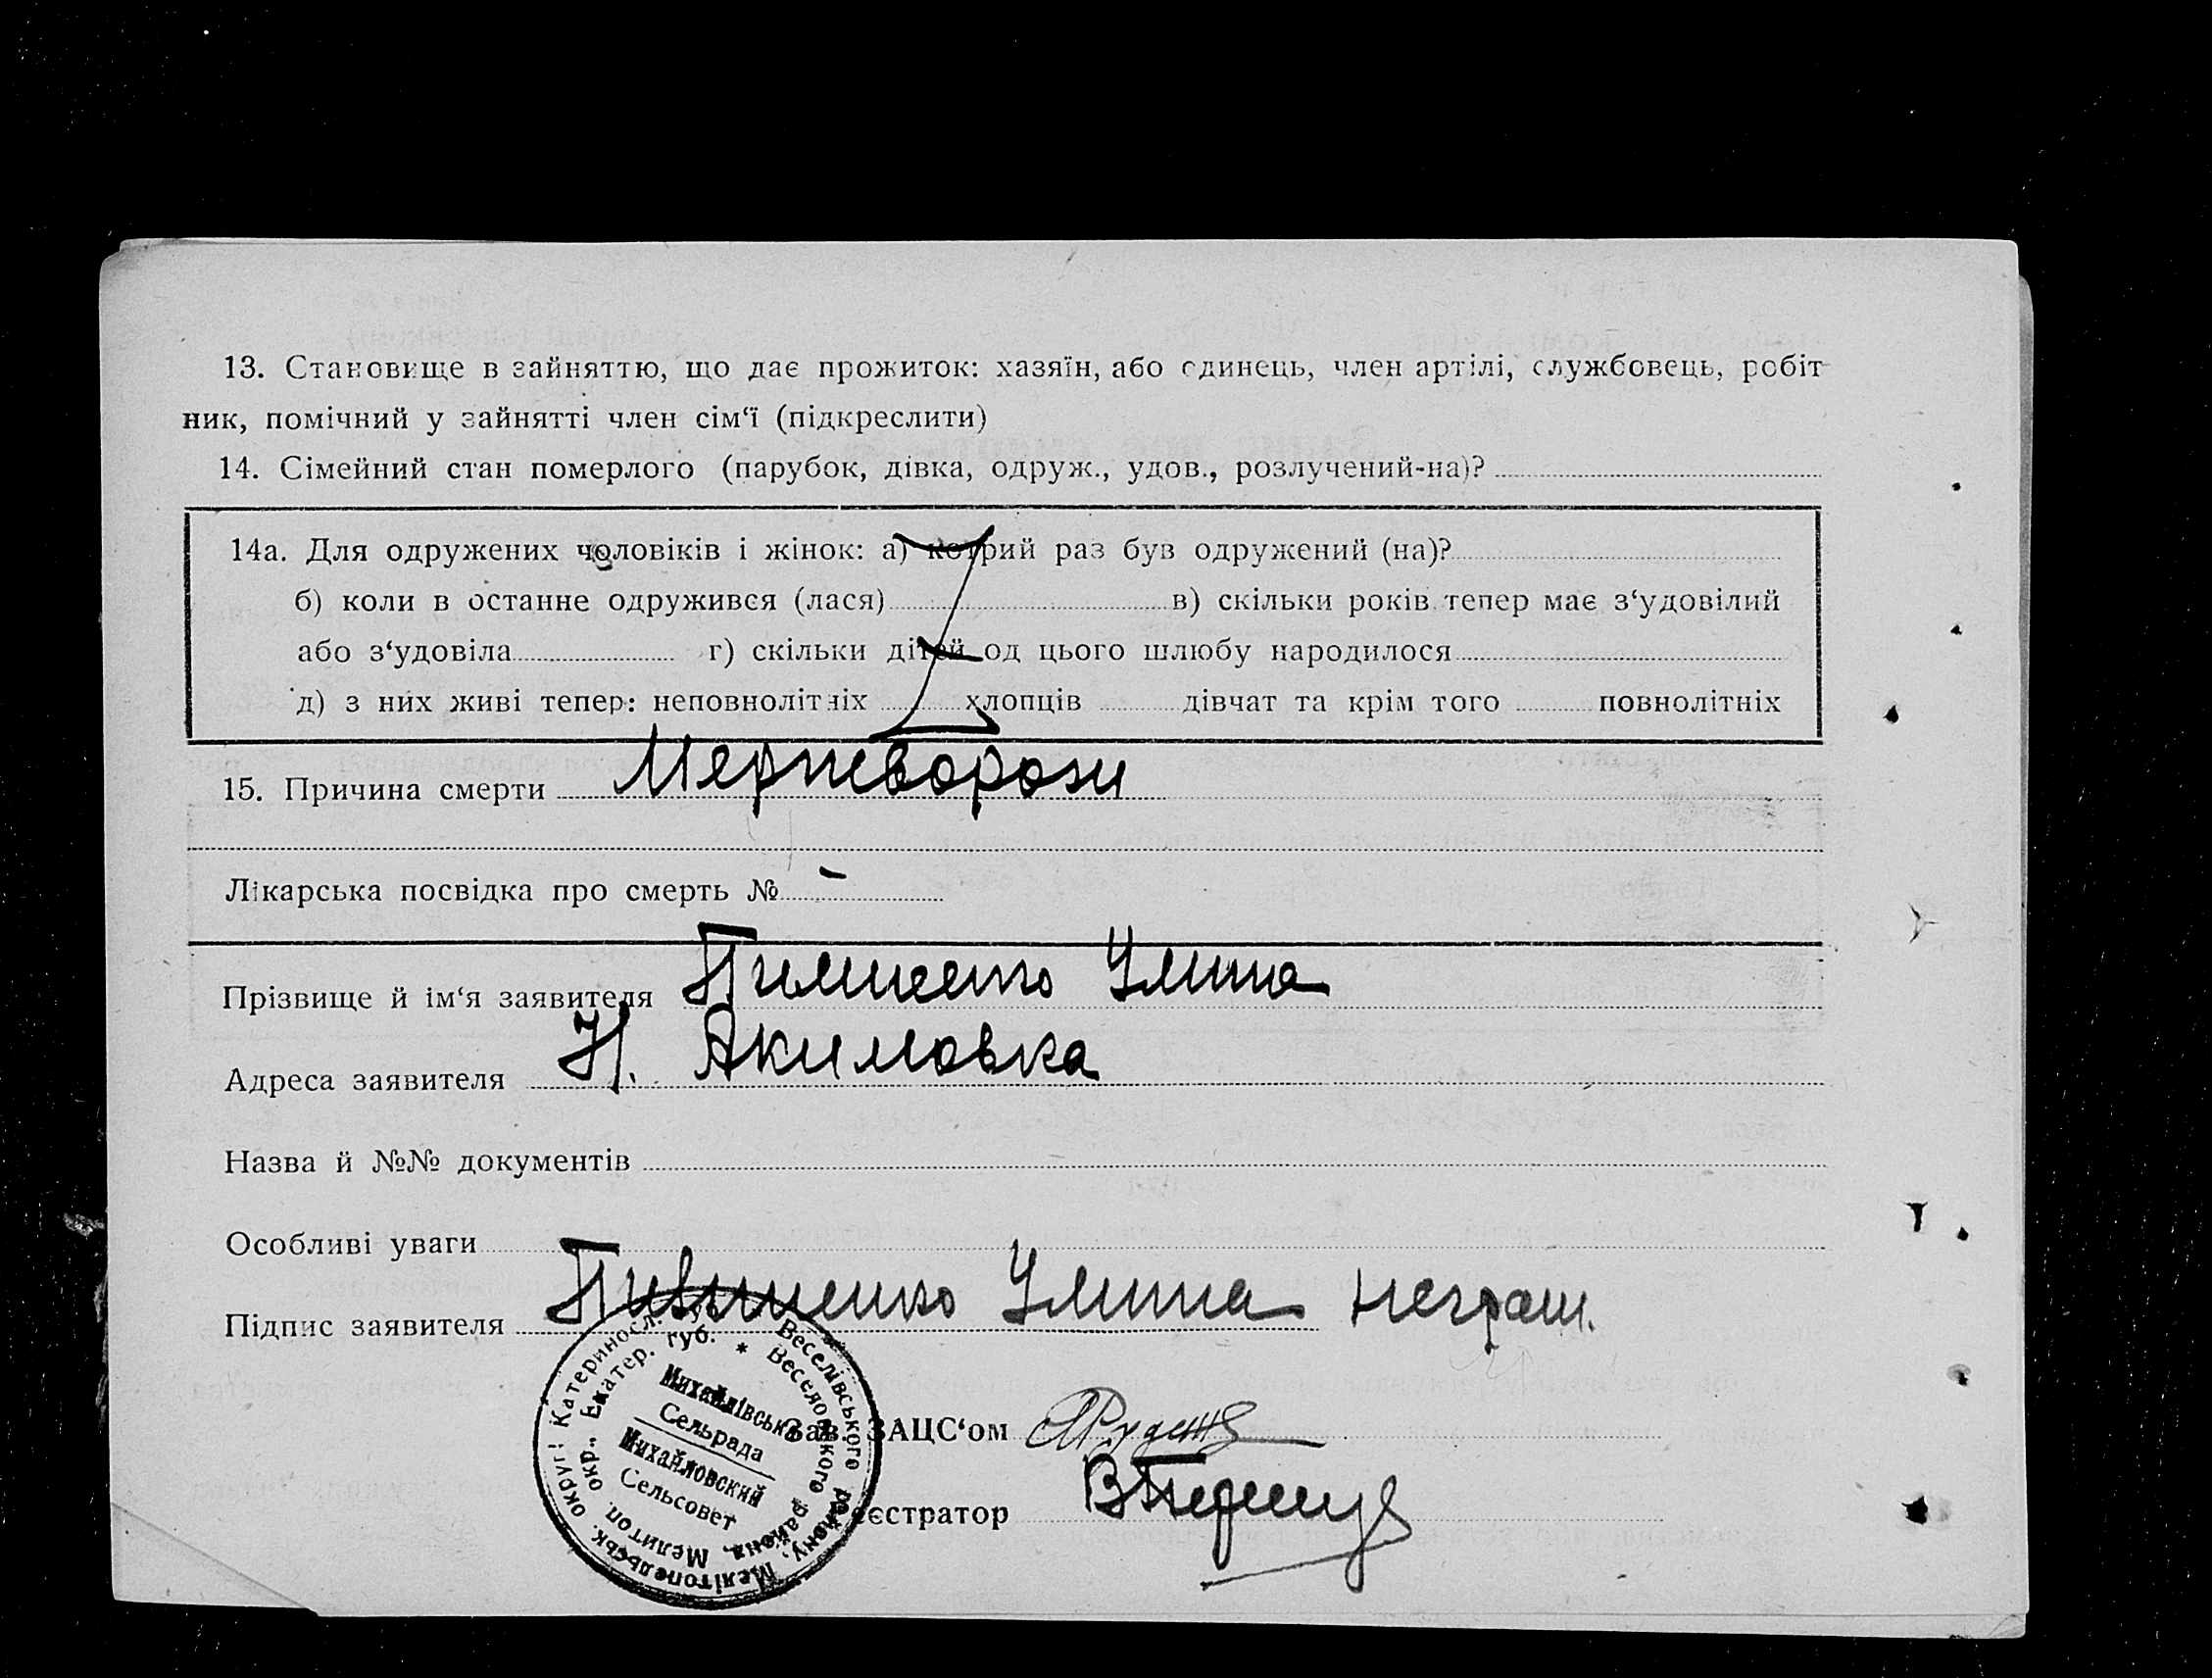 13. Становище в зайняттю, що дає прожиток: хазяїн, або одинець, член артілі, службовець, робіт-
ник, помічний у зайнятті член сім‘ї (підкреслити)
14. Сімейний стан померлого (парубок, дівка, одруж., удов., розлучений-на)?
14а. Для одружених чоловіків і жінок: а) котрий раз був одружений (на)?
б) коли в останне одружився (лася) в) скільки років тепер має з‘удовілий
або з‘удовіла г) скільки дітей од цього шлюбу народилося
д) з них живі тепер: неповнолітніх хлопців дівчат та крім того повнолітніх
15. Причина смерти Мертворози
Лікарська посвідка про смерть № –
Прізвище й ім‘я заявителя Улита
Адреса заявителя Н. Акимовка
Назва й №№ документів
Особливі уваги
Підпис заявителя Улита неграш.
Зав. ЗАЦС‘ом
еєстратор
Катериносл. Веселівського району, Мелітопельськ. округи
Екатер. губ. * Веселовского района, Мелитоп. окр.,
Михайлівська
Сельрада
Михайловский
Сельсовет